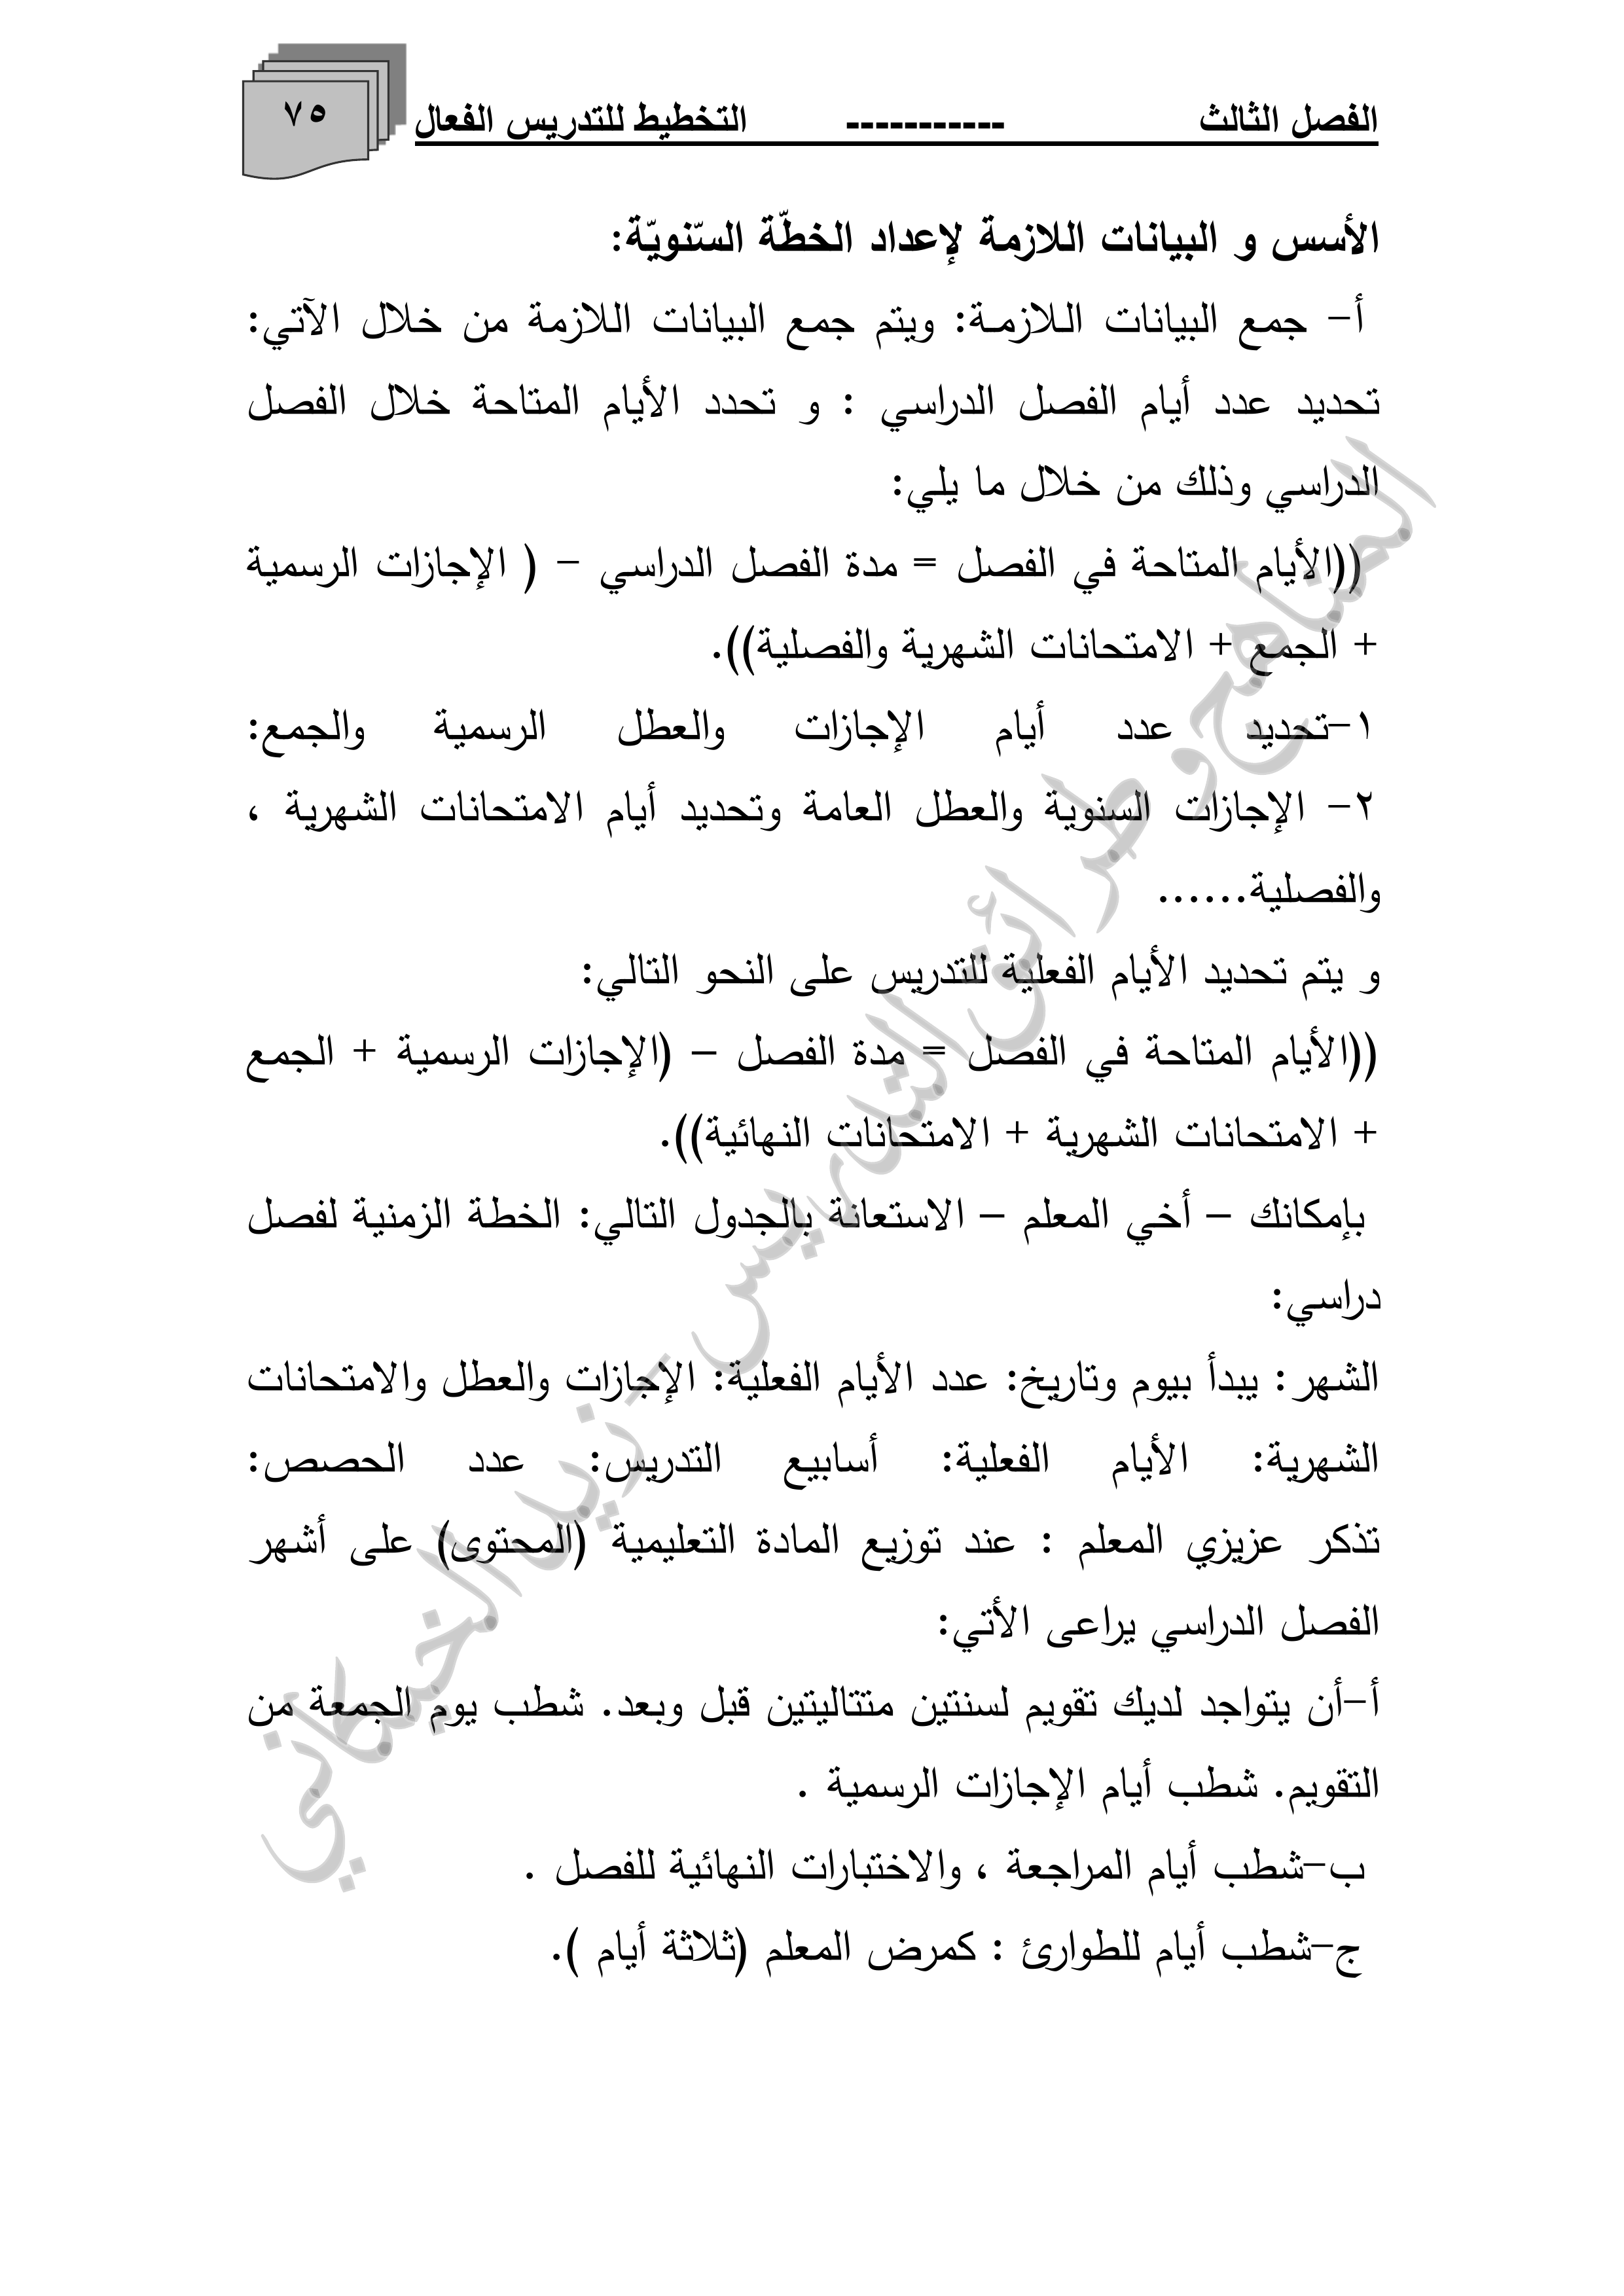 الفصل الثالث ----------- التخطيط للتدريس الفعال
٧٥
الأسس و البيانات اللازمة لإعداد الخطّة السّنويّة:
أ- جمع البيانات اللازمة: ويتم جمع البيانات اللازمة من خلال الآتي:
تحديد عدد أيام الفصل الدراسي : و تحدد الأيام المتاحة خلال الفصل
الدراسي وذلك من خلال ما يلي:
((الأيام المتاحة في الفصل = مدة الفصل الدراسي – ( الإجازات الرسمية
+ الجمع + الامتحانات الشهرية والفصلية)).
١-تحديد عدد أيام الإجازات والعطل الرسمية والجمع:
٢- الإجازات السنوية والعطل العامة وتحديد أيام الامتحانات الشهرية ،
والفصلية......
و يتم تحديد الأيام الفعلية للتدريس على النحو التالي:
((الأيام المتاحة في الفصل = مدة الفصل – (الإجازات الرسمية + الجمع
+ الامتحانات الشهرية + الامتحانات النهائية)).
بإمكانك – أخي المعلم – الاستعانة بالجدول التالي: الخطة الزمنية لفصل
دراسي:
الشهر: يبدأ بيوم وتاريخ: عدد الأيام الفعلية: الإجازات والعطل والامتحانات
الشهرية: الأيام الفعلية: أسابيع التدريس: عدد الحصص:
تذكر عزيزي المعلم : عند توزيع المادة التعليمية (المحتوى) على أشهر
الفصل الدراسي يراعى الأتي:
أ-أن يتواجد لديك تقويم لسنتين متتاليتين قبل وبعد. شطب يوم الجمعة من
التقويم. شطب أيام الإجازات الرسمية .
ب-شطب أيام المراجعة ، والاختبارات النهائية للفصل .
ج-شطب أيام للطوارئ : كمرض المعلم (ثلاثة أيام ).
المناهج وطرائق التدريس - نزيل الخيكاني